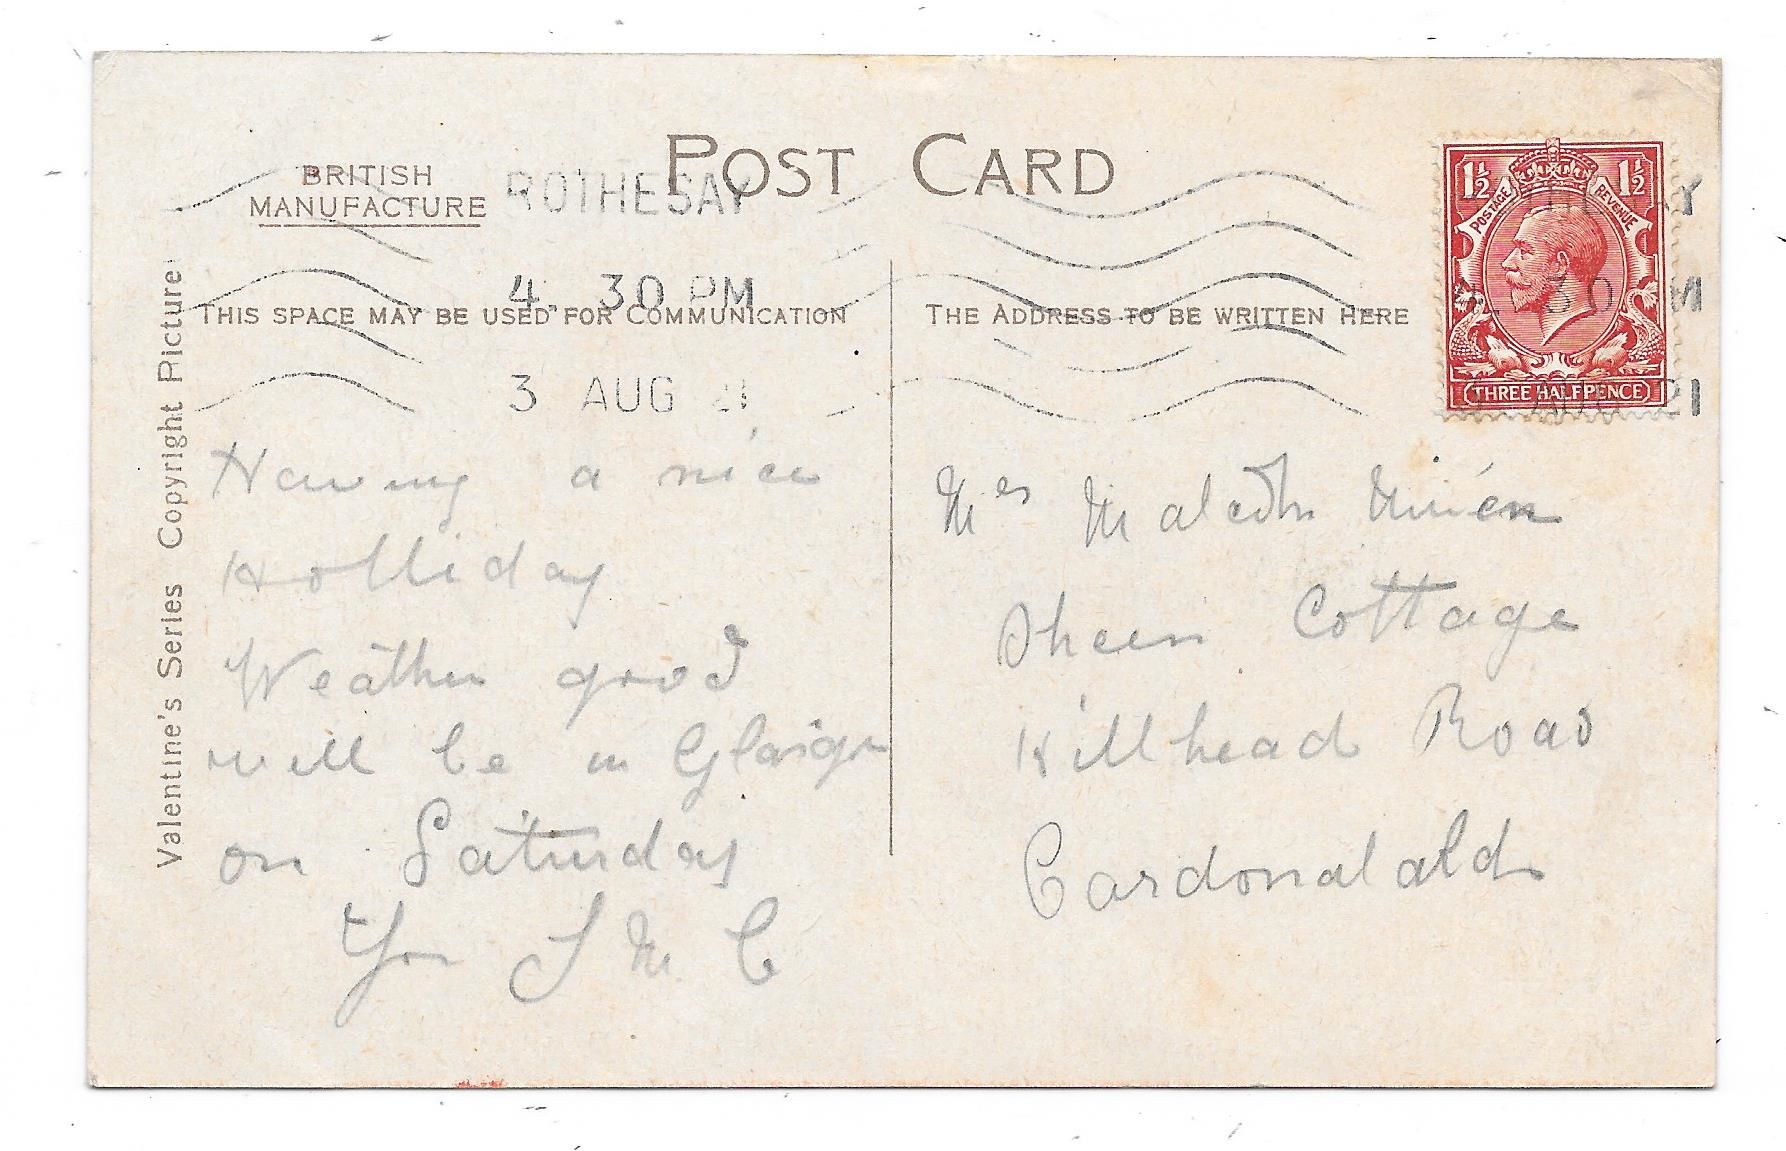 POST CARD
BRITISH
MANUFACTURE
ROTHESAY
4. 30 PM
3 AUG 21
THIS SPACE MAY BE USED FOR COMMUNICATION
THE ADDRESS TO BE WRITTEN HERE
1½ 1½
POSTAGE REVENUE
THREE HALFPENCE
Valentine's Series Copyright Picture
Having a nice
Holliday
Weather good
will be in
on Saturday
J M C
Mrs Malcolm
Cottage
Killhead Road
Cardonalald